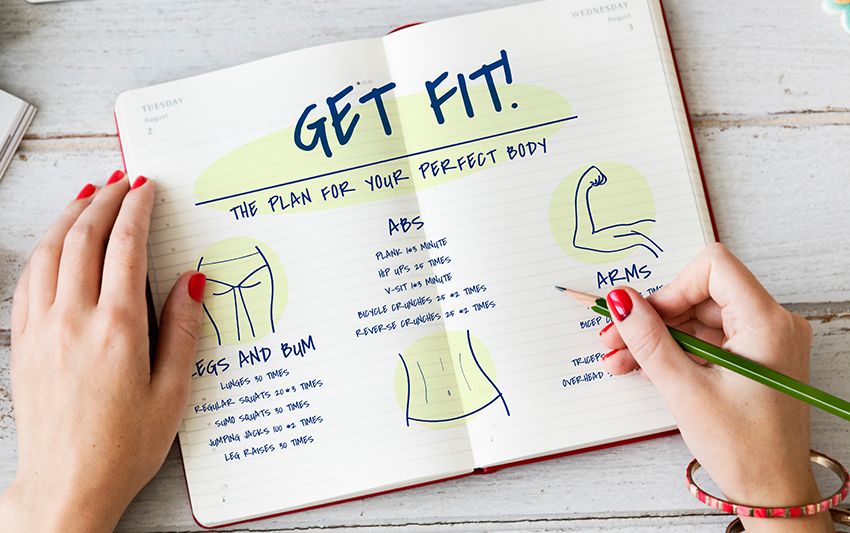 TUESDAY
August
2
WEDNESDAY
August
3
GET FIT!
THE PLAN FOR YOUR PERFECT BODY
ABS
PLANK 1*3 MINUTE
HIP UPS 25 TIMES
V-SIT 1*3 MINUTE
BICYCLE CRUNCHES 25 *2 TIMES
REVERSE CRUNCHES 25 *2 TIMES
LEGS AND BUM
LUNGES 30 TIMES
REGULAR SQUATS 20*3 TIMES
SUMO SQUATS 30 TIMES
JUMPING JACKS 100 *2 TIMES
LEG RAISES 30 TIMES
ARMS
BICEP
TRICEPS
OVERHEAD